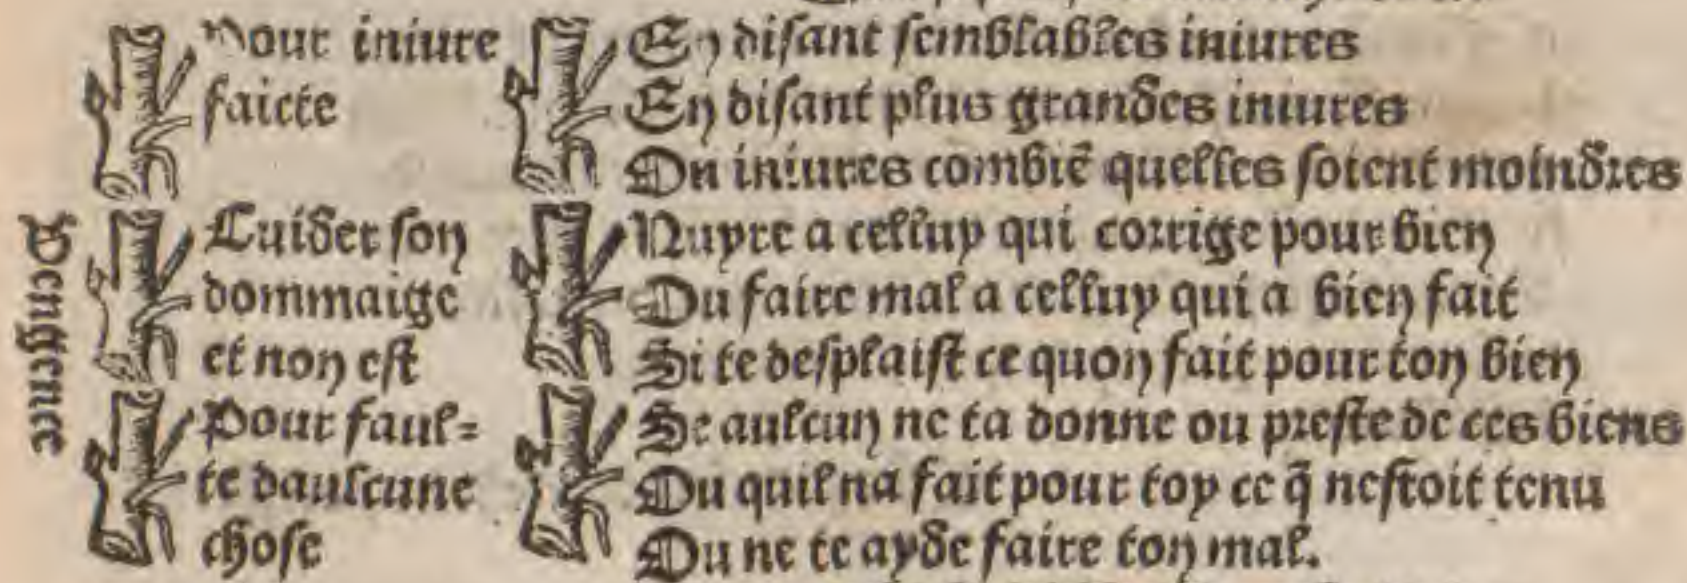 Vengence
Pour iniure
faicte
En disant semblables iniures
En disant plus grandes iniures
On iniures combiē quelles soient moindres
Cuider son
dommaige
et non est
Nuyre a celluy qui corrige pour bien
Ou faire mal a celluy qui a bien fait
Si te desplaist ce quon fait pour ton bien
Pour faul=
te daulcune
chose
Se aulcun ne ta donne ou preste de ces biens
Ou quil na fait pour toy ce q̄ nestoit tenu
Ou ne te ayde faire ton mal.